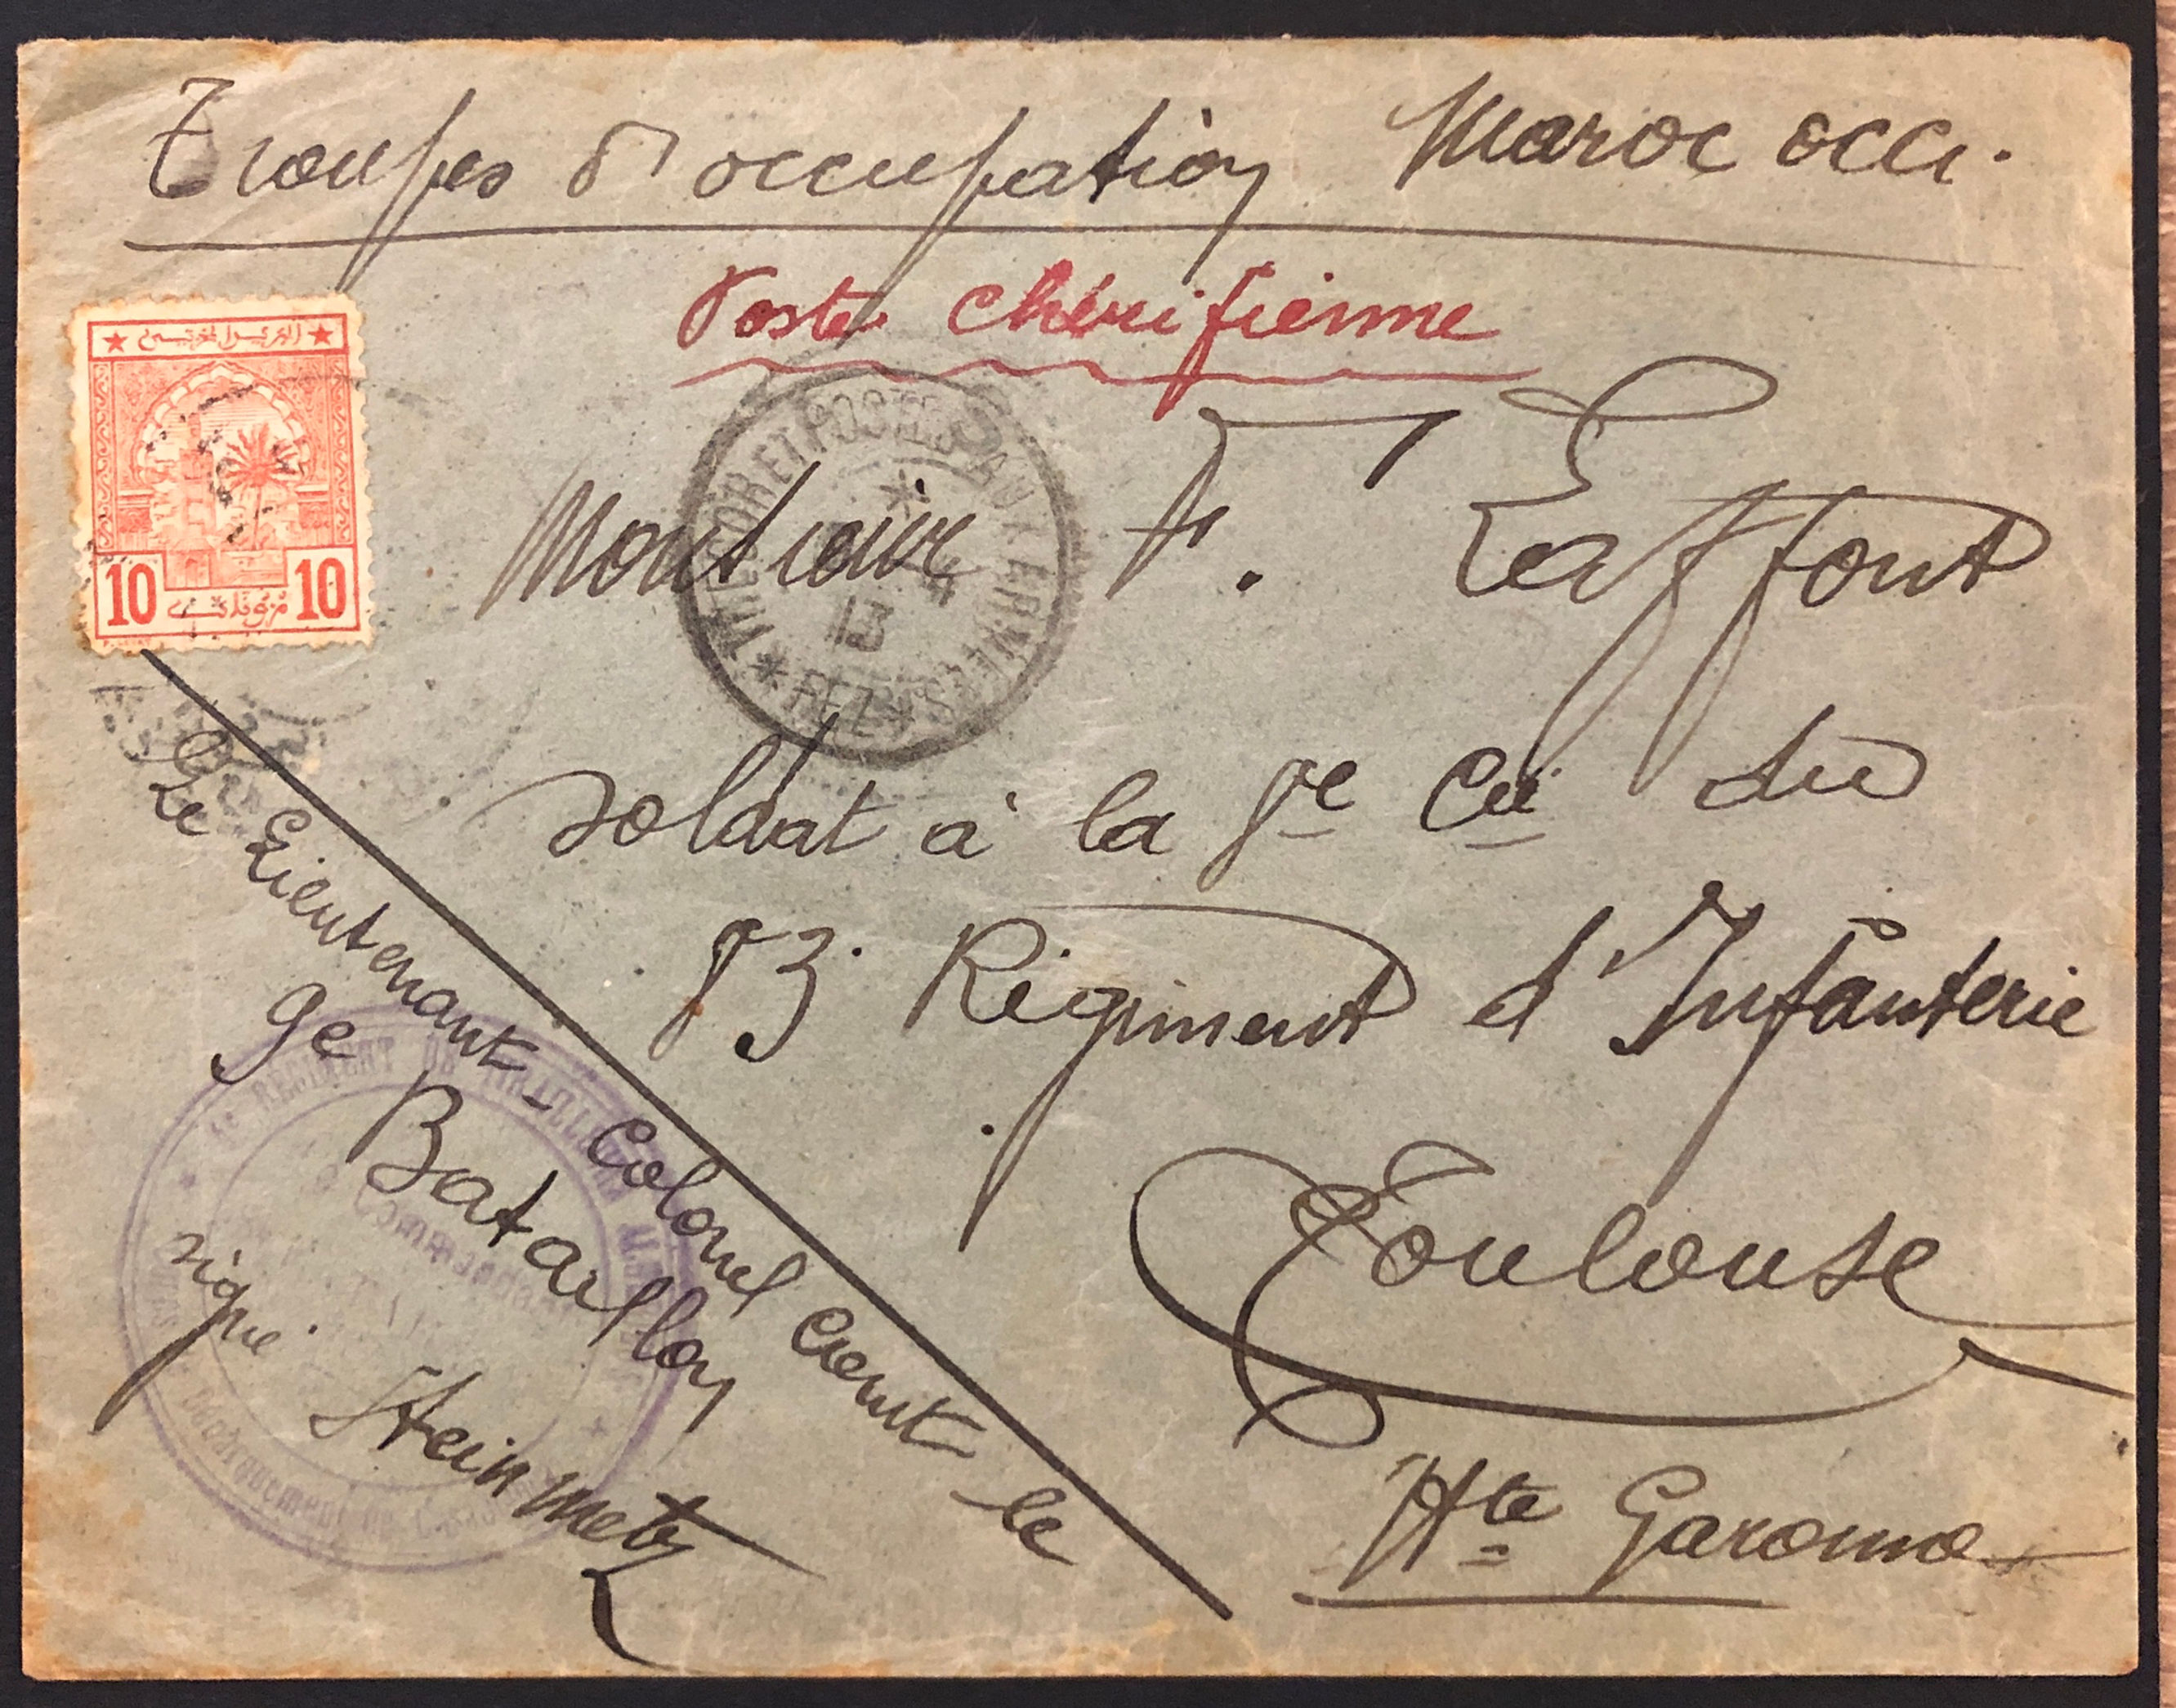 Troupes d'occupation Maroc occi.
Poste Chérifienne
10 10
TRESOR ET POSTES AUX ARMEES
4
13
* FEZ *
Monsieur F. Laffont
Soldat à la 8e Cie du
83 Régiment d'Infanterie
Toulouse
Hte Garonne
Le Lieutenant-Colonel Comt le
9e Bataillon
signé Steinmetz
REGIMENT DE TIRAILLEURS
Commandant
Débarquement de C